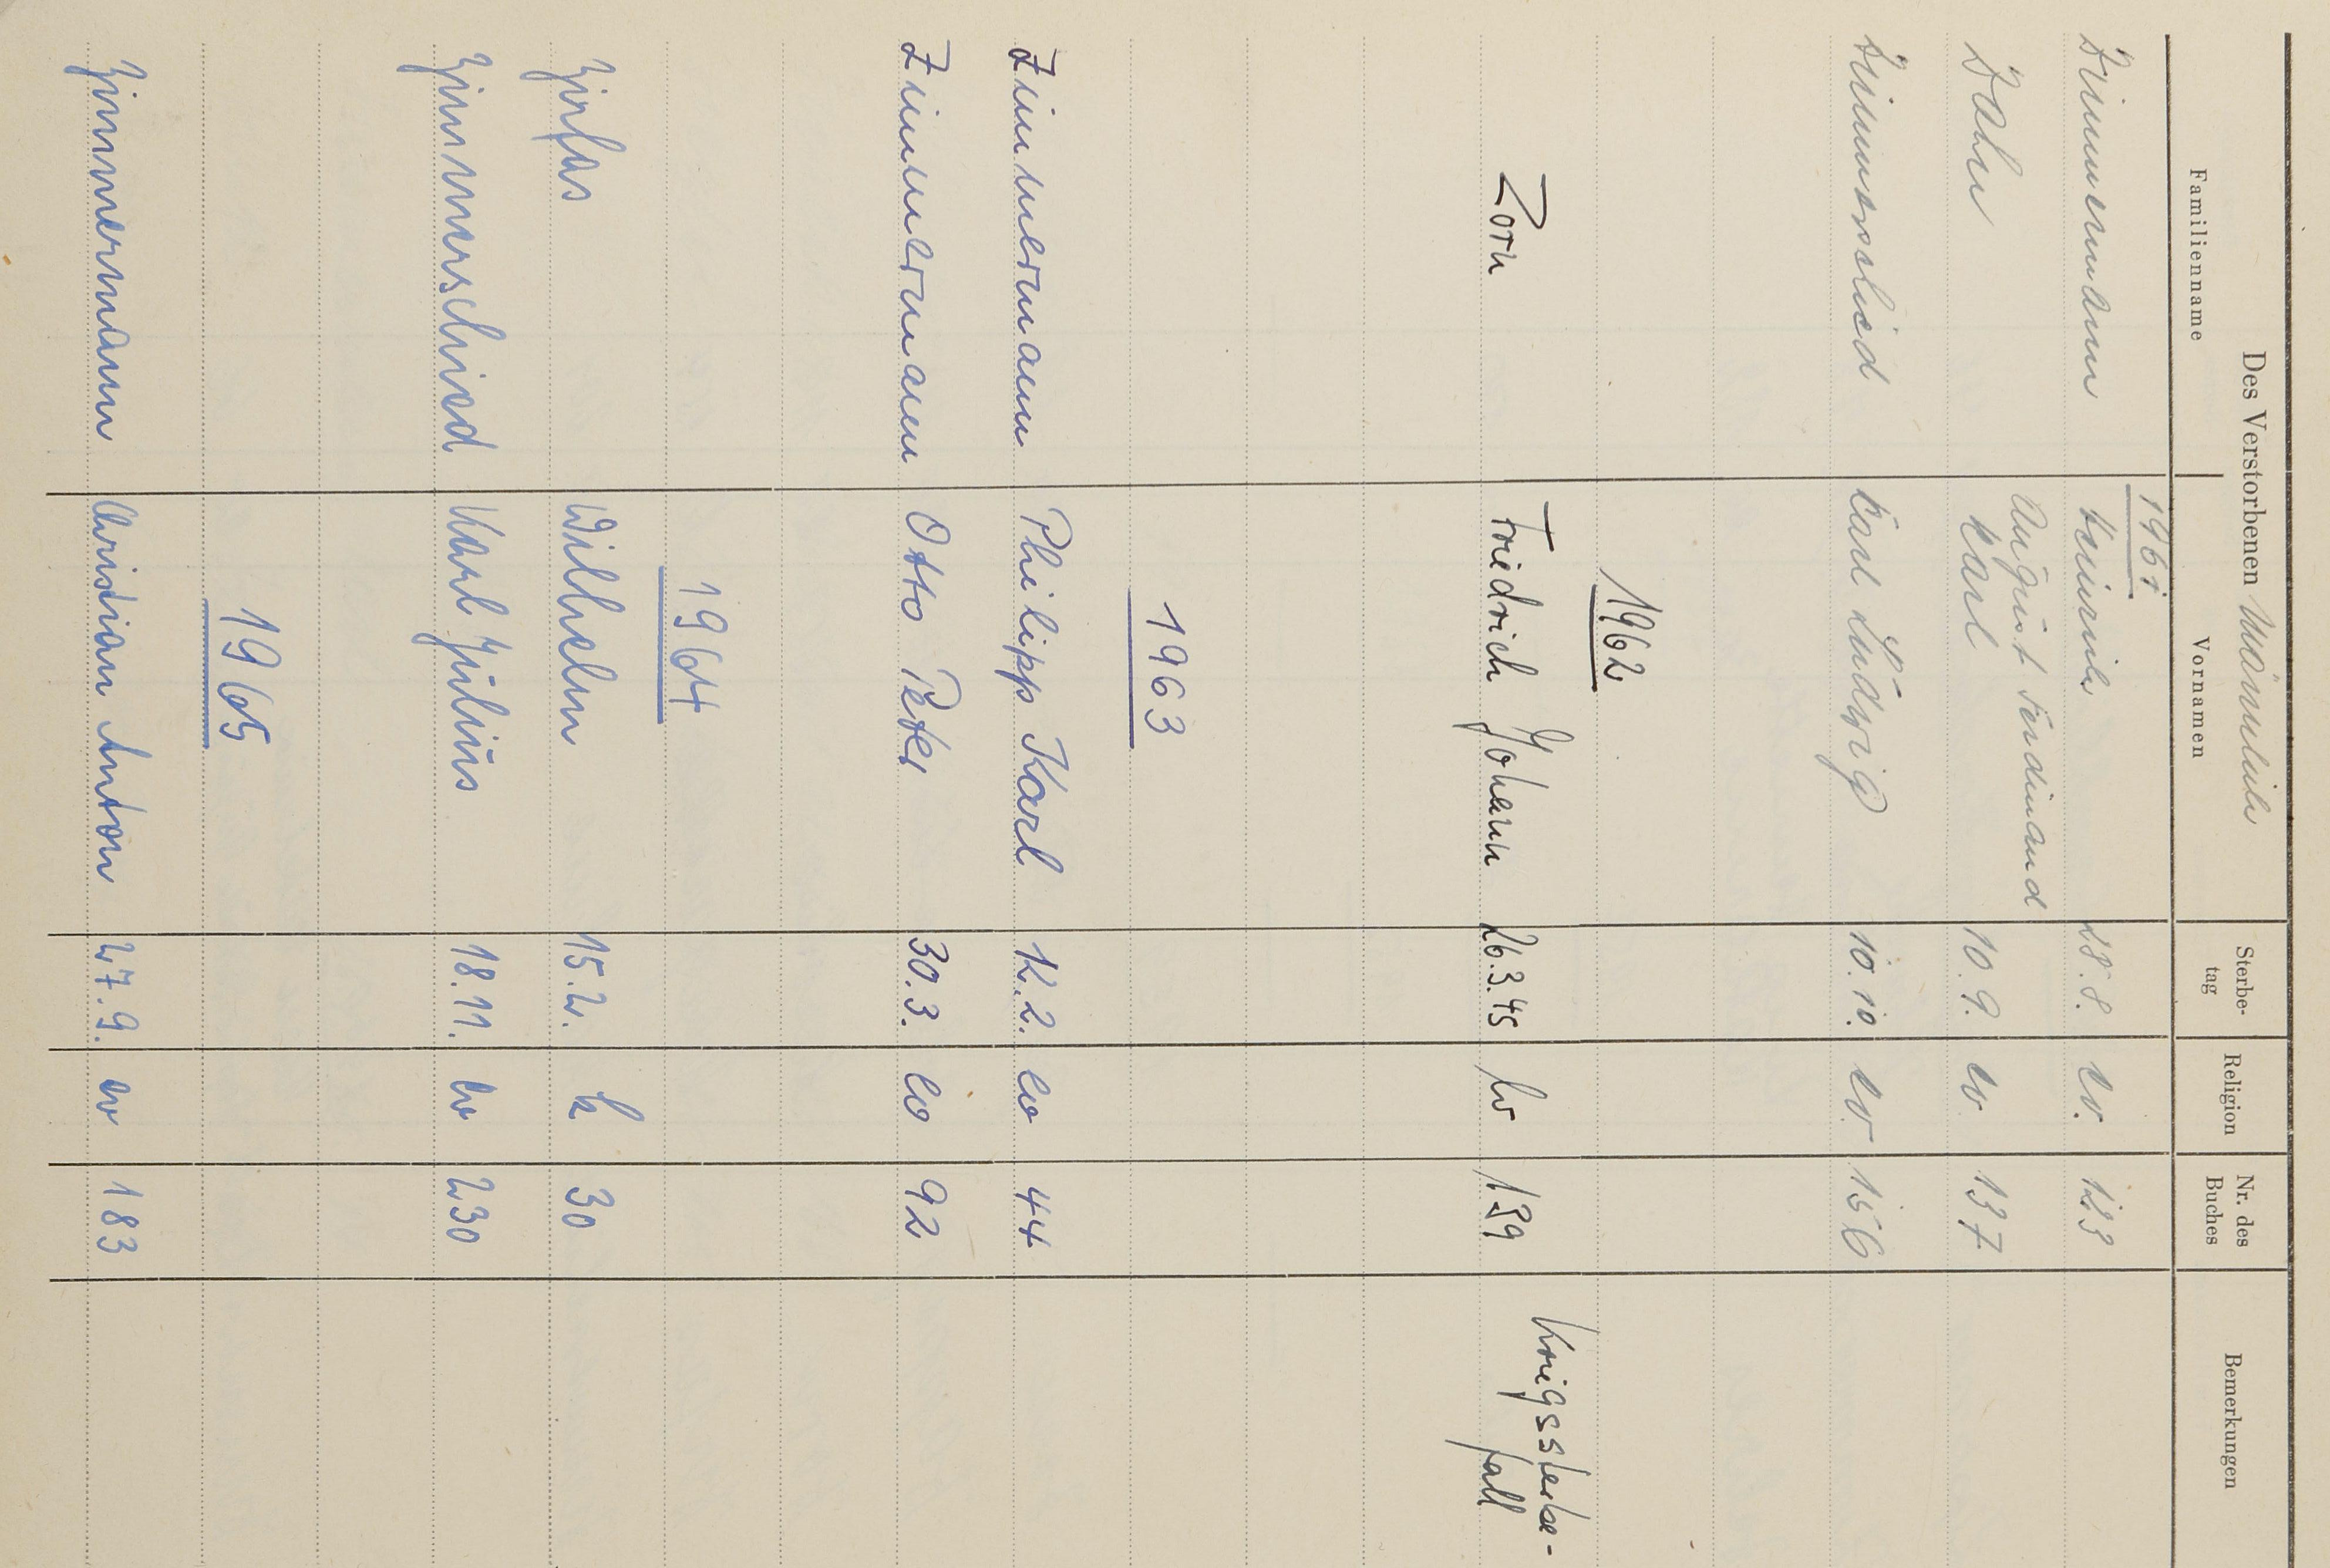 Des Verstorbenen Männlich
Familienname Vornamen Sterbe- Religion Nr. des Bemerkungen
tag Buches
1961
Zimmermann Heinrich 28.8. ev. 123
August Ferdinand
Zahn Karl 10.9. ev. 137
Zimmerschied Karl Ludwig 10.10. ev. 156
1962
Kriegssterbe-
Zorn Friedrich Johann 26.3.45 ev 139 fall
1963
Zimmermann Philipp Karl 12.2. ev 44
Zimmermann Otto Peter 30.3. ev 92
1964
Zirfas Wilhelm 15.2. k 30
Zimmerschied Karl Julius 18.11. ev 230
1965
Zimmermann Christian Anton 27.9. ev 183